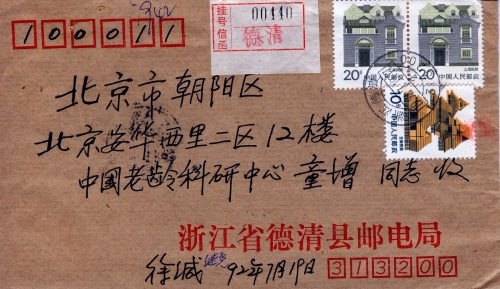 100011
挂号信函
00440
德清
20分 中国人民邮政
20分 中国人民邮政
10分 中国人民邮政
北京市朝阳区
北京安华西里二区12楼
中国老龄科研中心 童增 同志 收
浙江省德清县邮电局
徐城 92年7月19日 313200